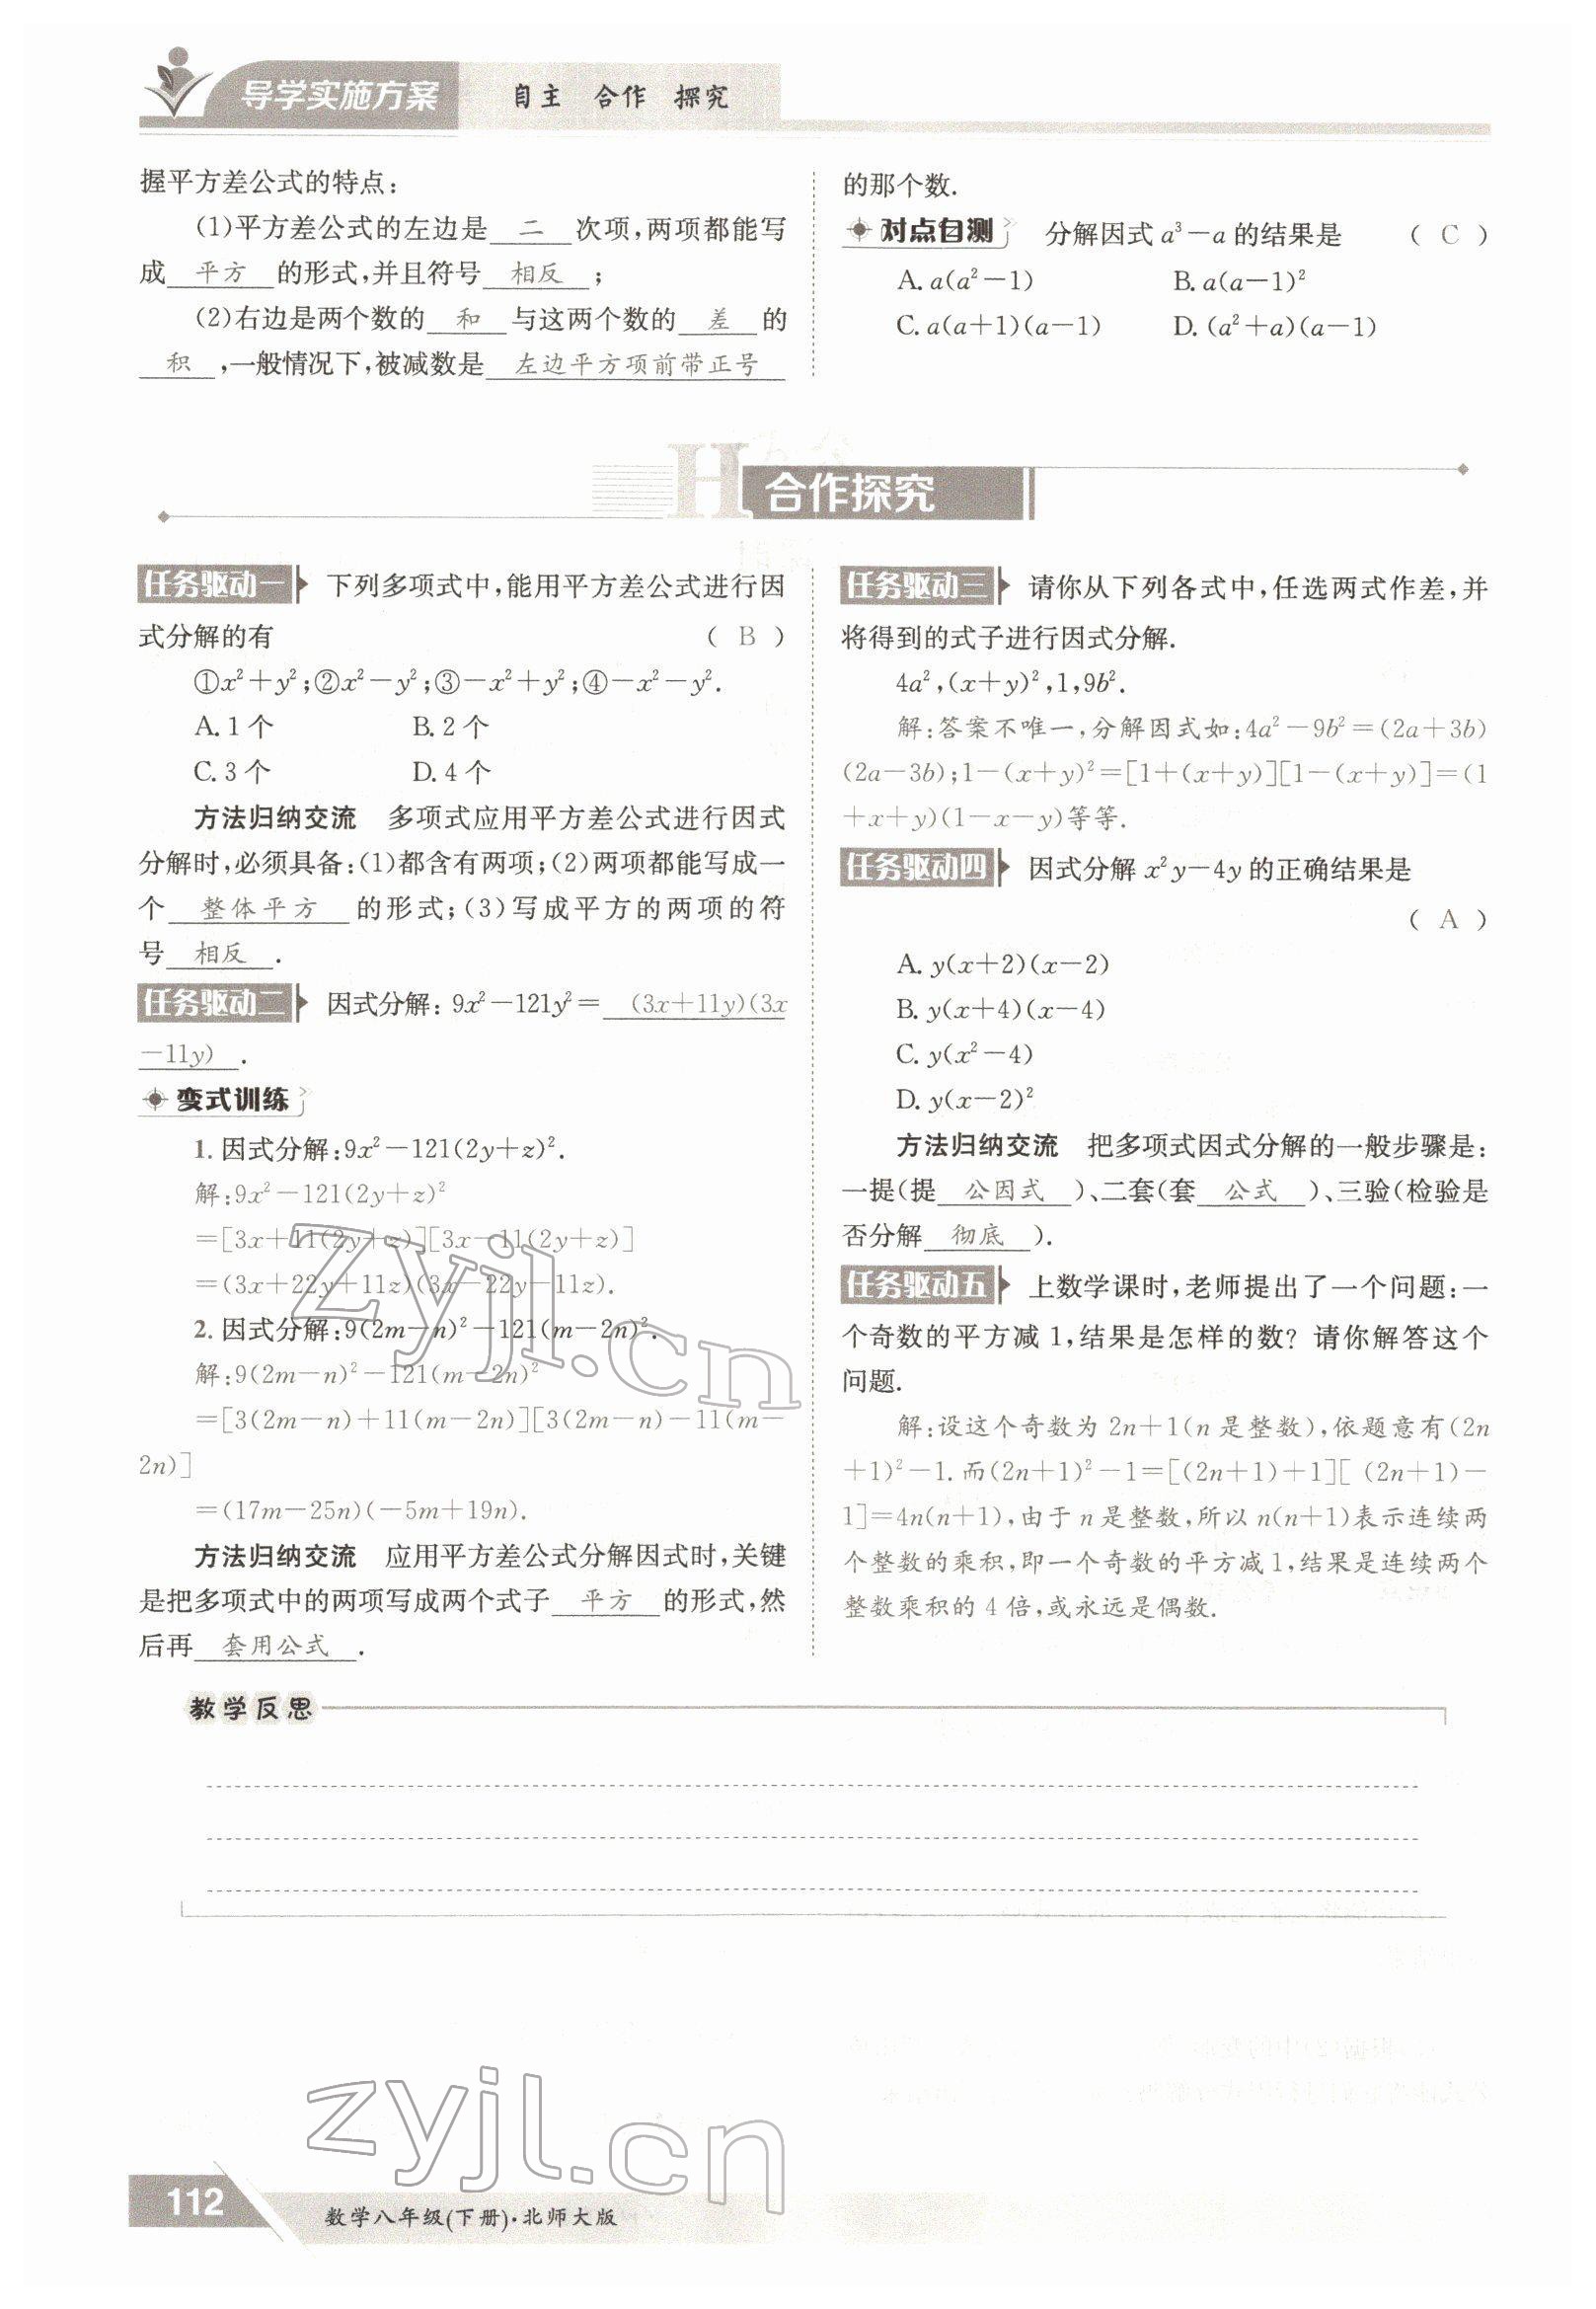 导学实施方案 自主 合作 探究
握平方差公式的特点:
(1)平方差公式的左边是 二 次项,两项都能写
成 平方 的形式,并且符号 相反 ;
(2)右边是两个数的 和 与这两个数的 差 的
积 ,一般情况下,被减数是 左边平方项前带正号
的那个数.
对点自测 分解因式 a³－a 的结果是 ( C )
A. a(a²－1) B. a(a－1)²
C. a(a＋1)(a－1) D. (a²＋a)(a－1)
H 合作探究
任务驱动一 下列多项式中,能用平方差公式进行因
式分解的有 ( B )
①x²＋y²;②x²－y²;③－x²＋y²;④－x²－y².
A. 1 个 B. 2 个
C. 3 个 D. 4 个
方法归纳交流 多项式应用平方差公式进行因式
分解时,必须具备:(1)都含有两项;(2)两项都能写成一
个 整体平方 的形式;(3)写成平方的两项的符
号 相反 .
任务驱动二 因式分解: 9x²－121y²＝ (3x＋11y)(3x
－11y) .
变式训练
1. 因式分解:9x²－121(2y＋z)².
解:9x²－121(2y＋z)²
＝[3x＋11(2y＋z)][3x－11(2y＋z)]
＝(3x＋22y＋11z)(3x－22y－11z).
2. 因式分解:9(2m－n)²－121(m－2n)².
解:9(2m－n)²－121(m－2n)²
＝[3(2m－n)＋11(m－2n)][3(2m－n)－11(m－
2n)]
＝(17m－25n)(－5m＋19n).
方法归纳交流 应用平方差公式分解因式时,关键
是把多项式中的两项写成两个式子 平方 的形式,然
后再 套用公式 .
任务驱动三 请你从下列各式中,任选两式作差,并
将得到的式子进行因式分解.
4a²,(x＋y)²,1,9b².
解:答案不唯一,分解因式如:4a²－9b²＝(2a＋3b)
(2a－3b);1－(x＋y)²＝[1＋(x＋y)][1－(x＋y)]＝(1
＋x＋y)(1－x－y)等等.
任务驱动四 因式分解 x²y－4y 的正确结果是
( A )
A. y(x＋2)(x－2)
B. y(x＋4)(x－4)
C. y(x²－4)
D. y(x－2)²
方法归纳交流 把多项式因式分解的一般步骤是:
一提(提 公因式 )、二套(套 公式 )、三验(检验是
否分解 彻底 ).
任务驱动五 上数学课时,老师提出了一个问题:一
个奇数的平方减 1,结果是怎样的数? 请你解答这个
问题.
解:设这个奇数为 2n＋1(n 是整数),依题意有(2n
＋1)²－1. 而(2n＋1)²－1＝[(2n＋1)＋1][ (2n＋1)－
1]＝4n(n＋1),由于 n 是整数,所以 n(n＋1)表示连续两
个整数的乘积,即一个奇数的平方减 1,结果是连续两个
整数乘积的 4 倍,或永远是偶数.
教学反思
zyjl.cn
zyjl.cn
112 数学八年级(下册)·北师大版